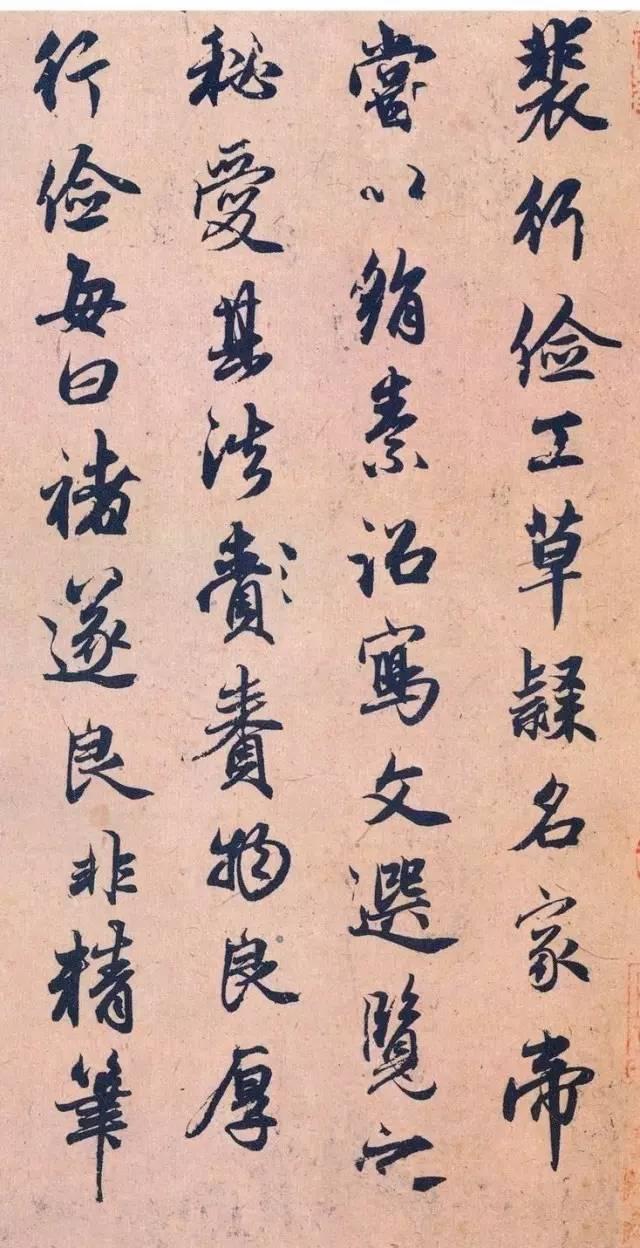 裴行儉工草隸名家帝
嘗以絹素詔寫文選覽之
秘愛其法賚賚物良厚
行儉每曰褚遂良非精筆